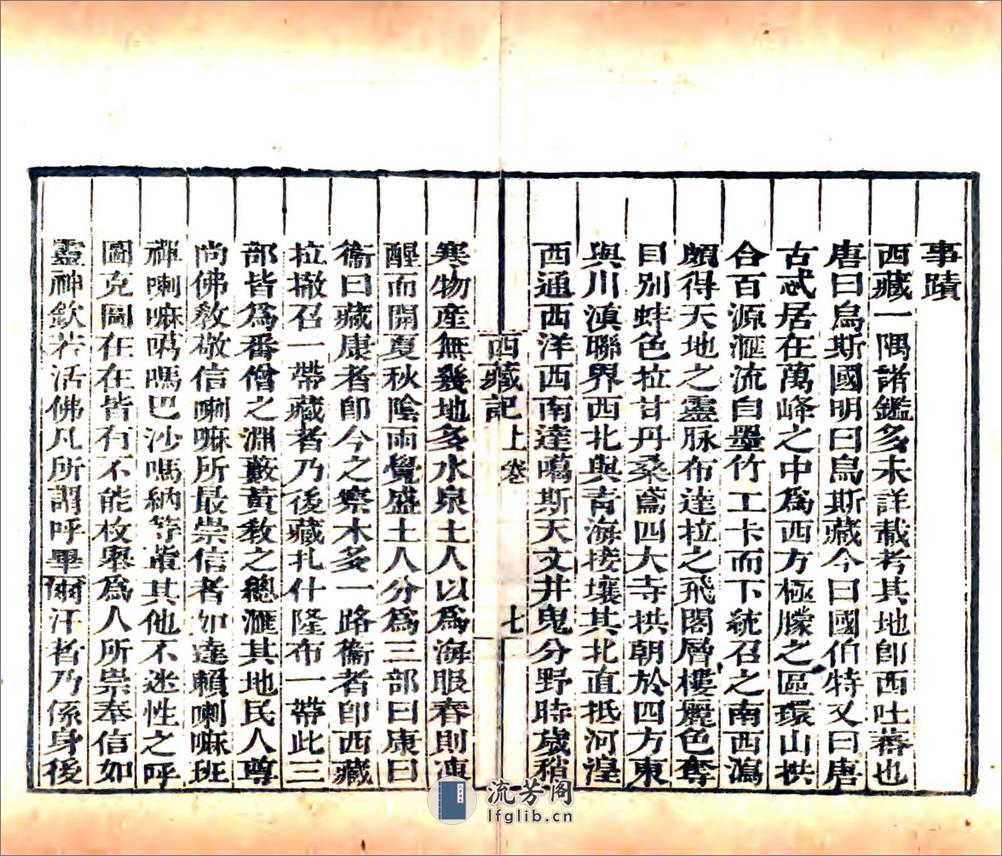 事蹟
西藏一隅諸鑑多未詳載考其地卽西吐蕃也
唐曰烏斯國明曰烏斯藏今曰圖伯特又曰唐
古忒居在萬峰之中爲西方極朦之區環山拱
合百源滙流自墨竹工卡而下統召之南西瀉
頗得天地之靈脉布達拉之飛閣層樓麗色奪
目別蚌色拉甘丹桑鳶四大寺拱朝於四方東
與川滇聯界西北與青海接壤其北直抵河湟
西通西洋西南達噶斯天文井鬼分野時歲稍
西藏記 上卷 七
寒物産無幾地多水泉土人以爲海眼春則凍
醒而開夏秋陰雨覺盛土人分爲三部曰康曰
衞曰藏康者卽今之察木多一路衞者卽西藏
拉撒召一帶藏者乃後藏扎什隆布一帶此三
部皆爲番僧之淵藪黃教之總滙其地民人尊
尚佛教敬信喇嘛所最崇信者如達賴喇嘛班
禪喇嘛噶嗎巴沙嗎納等輩其他不迷性之呼
圖克圖在在皆有不能枚舉爲人所崇奉信如
靈神欽若活佛凡所謂呼畢爾汗者乃係身後
流芳阁
lfglib.cn